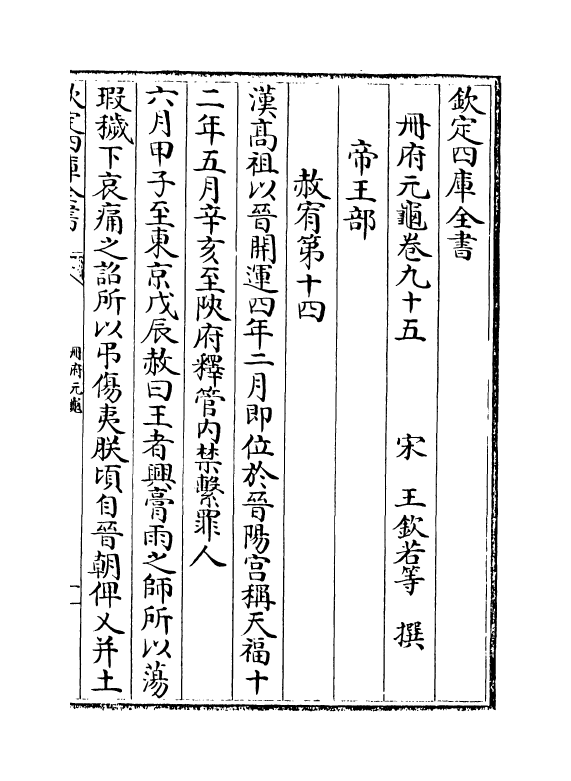 欽定四庫全書
冊府元龜卷九十五　宋　王欽若等　撰
帝王部
赦宥第十四
漢髙祖以晉開運四年二月即位於晉陽宫稱天福十
二年五月辛亥至陜府釋管内禁繫罪人
六月甲子至東京戊辰赦曰王者興膏雨之師所以蕩
瑕穢下哀痛之詔所以弔傷夷朕頃自晉朝俾乂并土
欽定四庫全書
冊府元龜